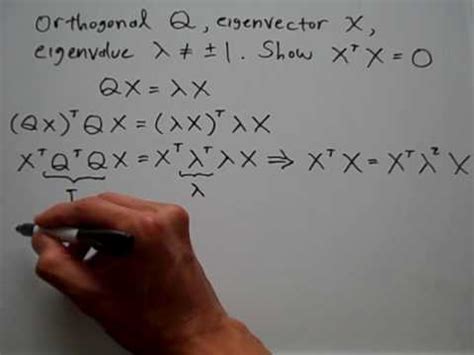 Orthogonal Q, eigenvector X,
eigenvalue λ ≠ ±1. Show XᵀX = 0
QX = λX
(QX)ᵀQX = (λX)ᵀλX
XᵀQᵀQX = XᵀλᵀλX ⇒ XᵀX = Xᵀλ²X
I λ